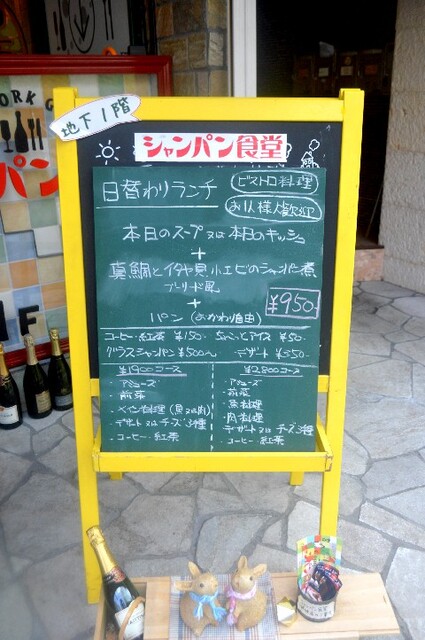 ORK
地下1階
シャンパン食堂
パン
日替わりランチ
ビストロ料理
お1人様大歓迎
本日のスープ又は本日のキッシュ
+
真鯛とイトヨリ、小エビのシャンパン煮
ブリード風
+
¥950
パン(おかわり自由)
コーヒー・紅茶 ¥150 ちょこっとアイス ¥50
グラスシャンパン ¥500〜 デザート ¥350
¥1900コース
・アミューズ
・前菜
・メイン料理(魚又は肉)
・デザート又はチーズ3種
・コーヒー・紅茶
¥2,800コース
・アミューズ
・前菜
・魚料理
・肉料理
・デザート又はチーズ3種
・コーヒー・紅茶